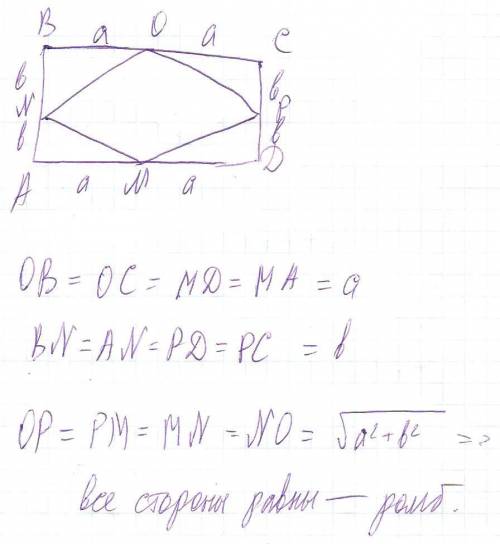 B a O a C
в в
N P
в в
A a M a D
OB = OC = MD = MA = a
BN = AN = PD = PC = в
OP = PM = MN = NO = √a²+в² =>
все стороны равны — ромб.